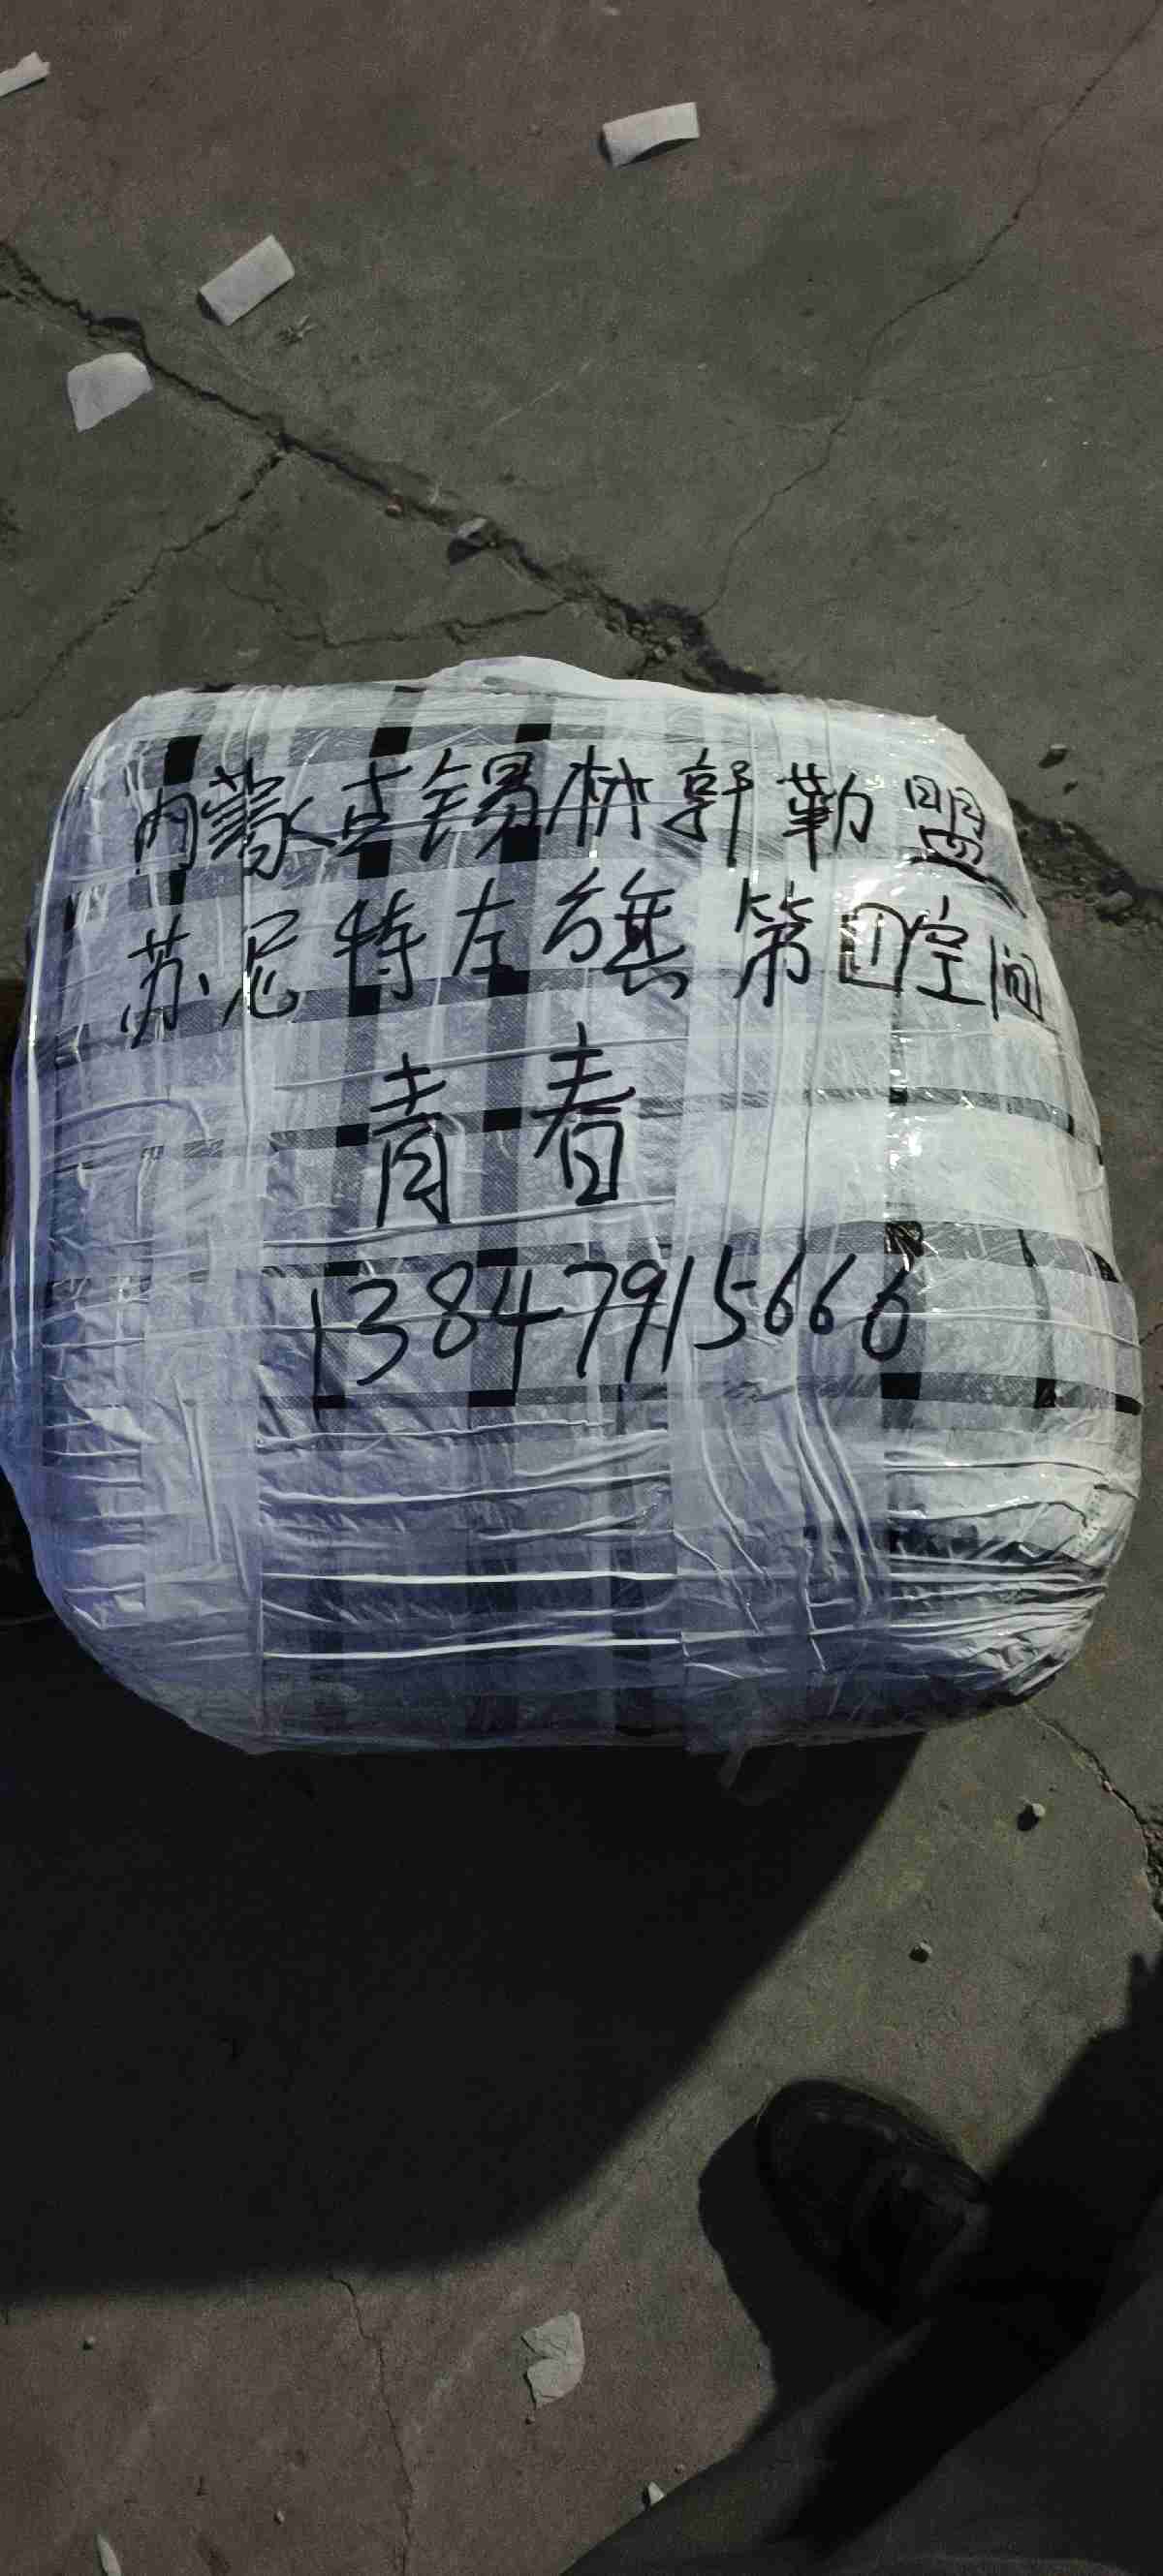 内蒙古锡林郭勒盟
苏尼特左旗第四空间
青春
13847915666